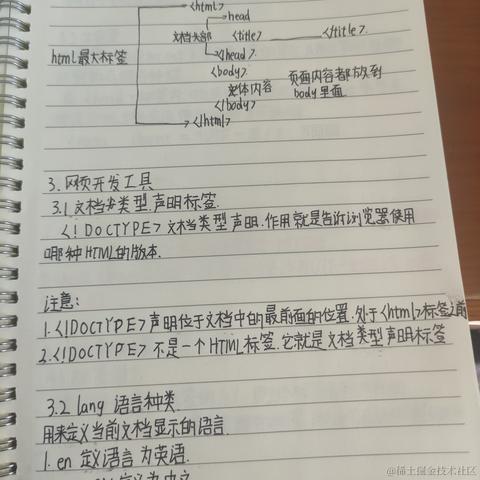 <html>
head
文档头部 <title> </title>.
</head>.
html最大标签
<body>
主体内容 页面内容都放到
</body> body里面
</html>
3.网页开发工具
3.1 文档类型.声明标签.
<!DOCTYPE> 文档类型声明.作用就是告诉浏览器使用
哪种HTML的版本.
注意:
1.<!DOCTYPE>声明位于文档中的最前面的位置.处于<html>标签之前
2.<!DOCTYPE>不是一个HTML标签.它就是文档类型声明标签
3.2 lang 语言种类.
用来定义当前文档显示的语言.
1. en 定义语言为英语.
定义为中文
@稀土掘金技术社区